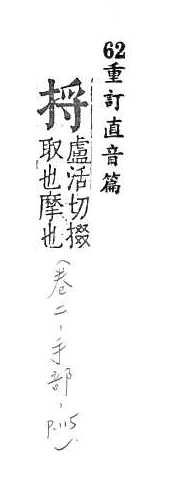 62重訂直音篇
捋
盧活切掇
取也摩也
(卷二-手部-P.115)